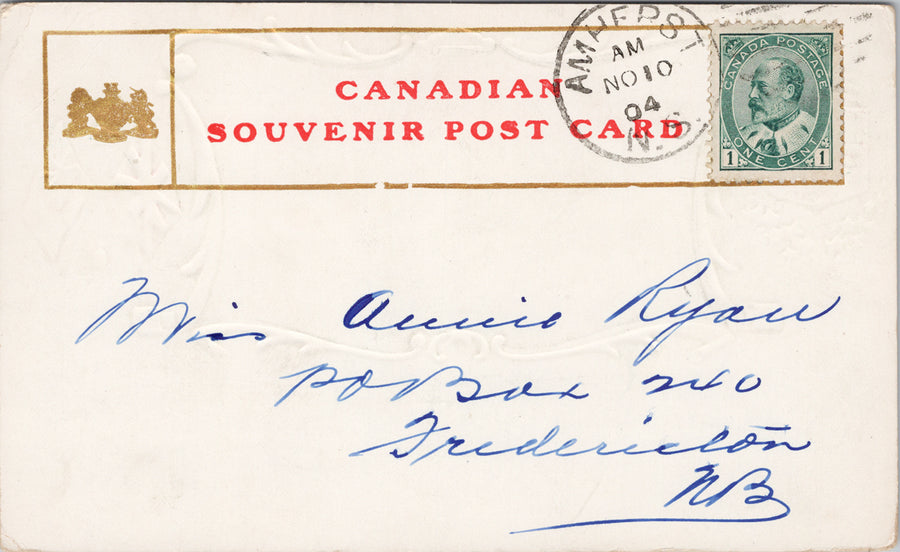 CANADIAN
SOUVENIR POST CARD
AMHERST
AM
NO 10
04
N.S.
CANADA POSTAGE
1 ONE CENT 1
Miss Annie Ryan
PO Box 240
Fredericton
NB